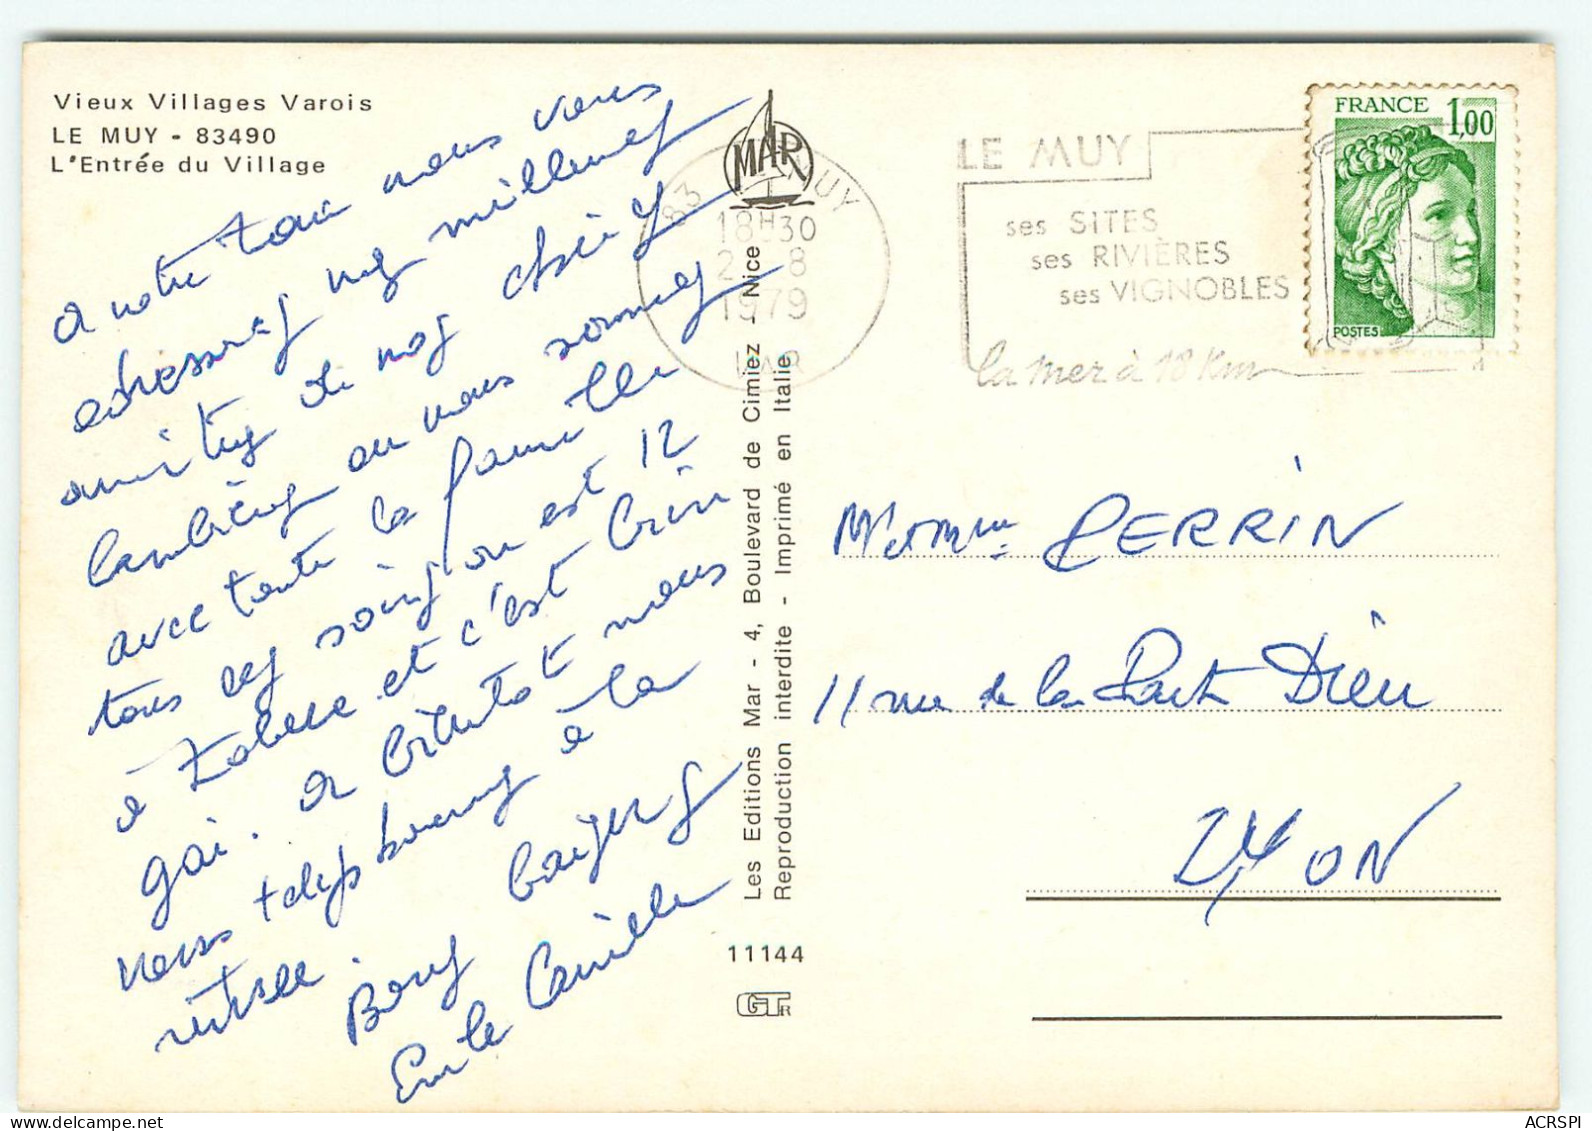 Vieux Villages Varois
LE MUY - 83490
L'Entrée du Village
a notre tour nous vous
adressons nos meilleures
amitiés de nos chères
où nous sommes
avec toute la famille
tous ces soirs on est 12
à table et c'est bien
gai. a bientot nous
vous telephonerons à la
rentrée.
Bons baisers
Emile Camille
MAR
83 LE MUY
18H30
2 -8
1979
VAR
LE MUY
ses SITES
ses RIVIÈRES
ses VIGNOBLES
la mer à 18 Km
FRANCE 1,00
POSTES
Les Editions Mar - 4, Boulevard de Cimiez - Nice
Reproduction interdite - Imprimé en Italie
11144
GTR
Mr et Mme PERRIN
11 rue de la Part Dieu
LYON
ACRSPI